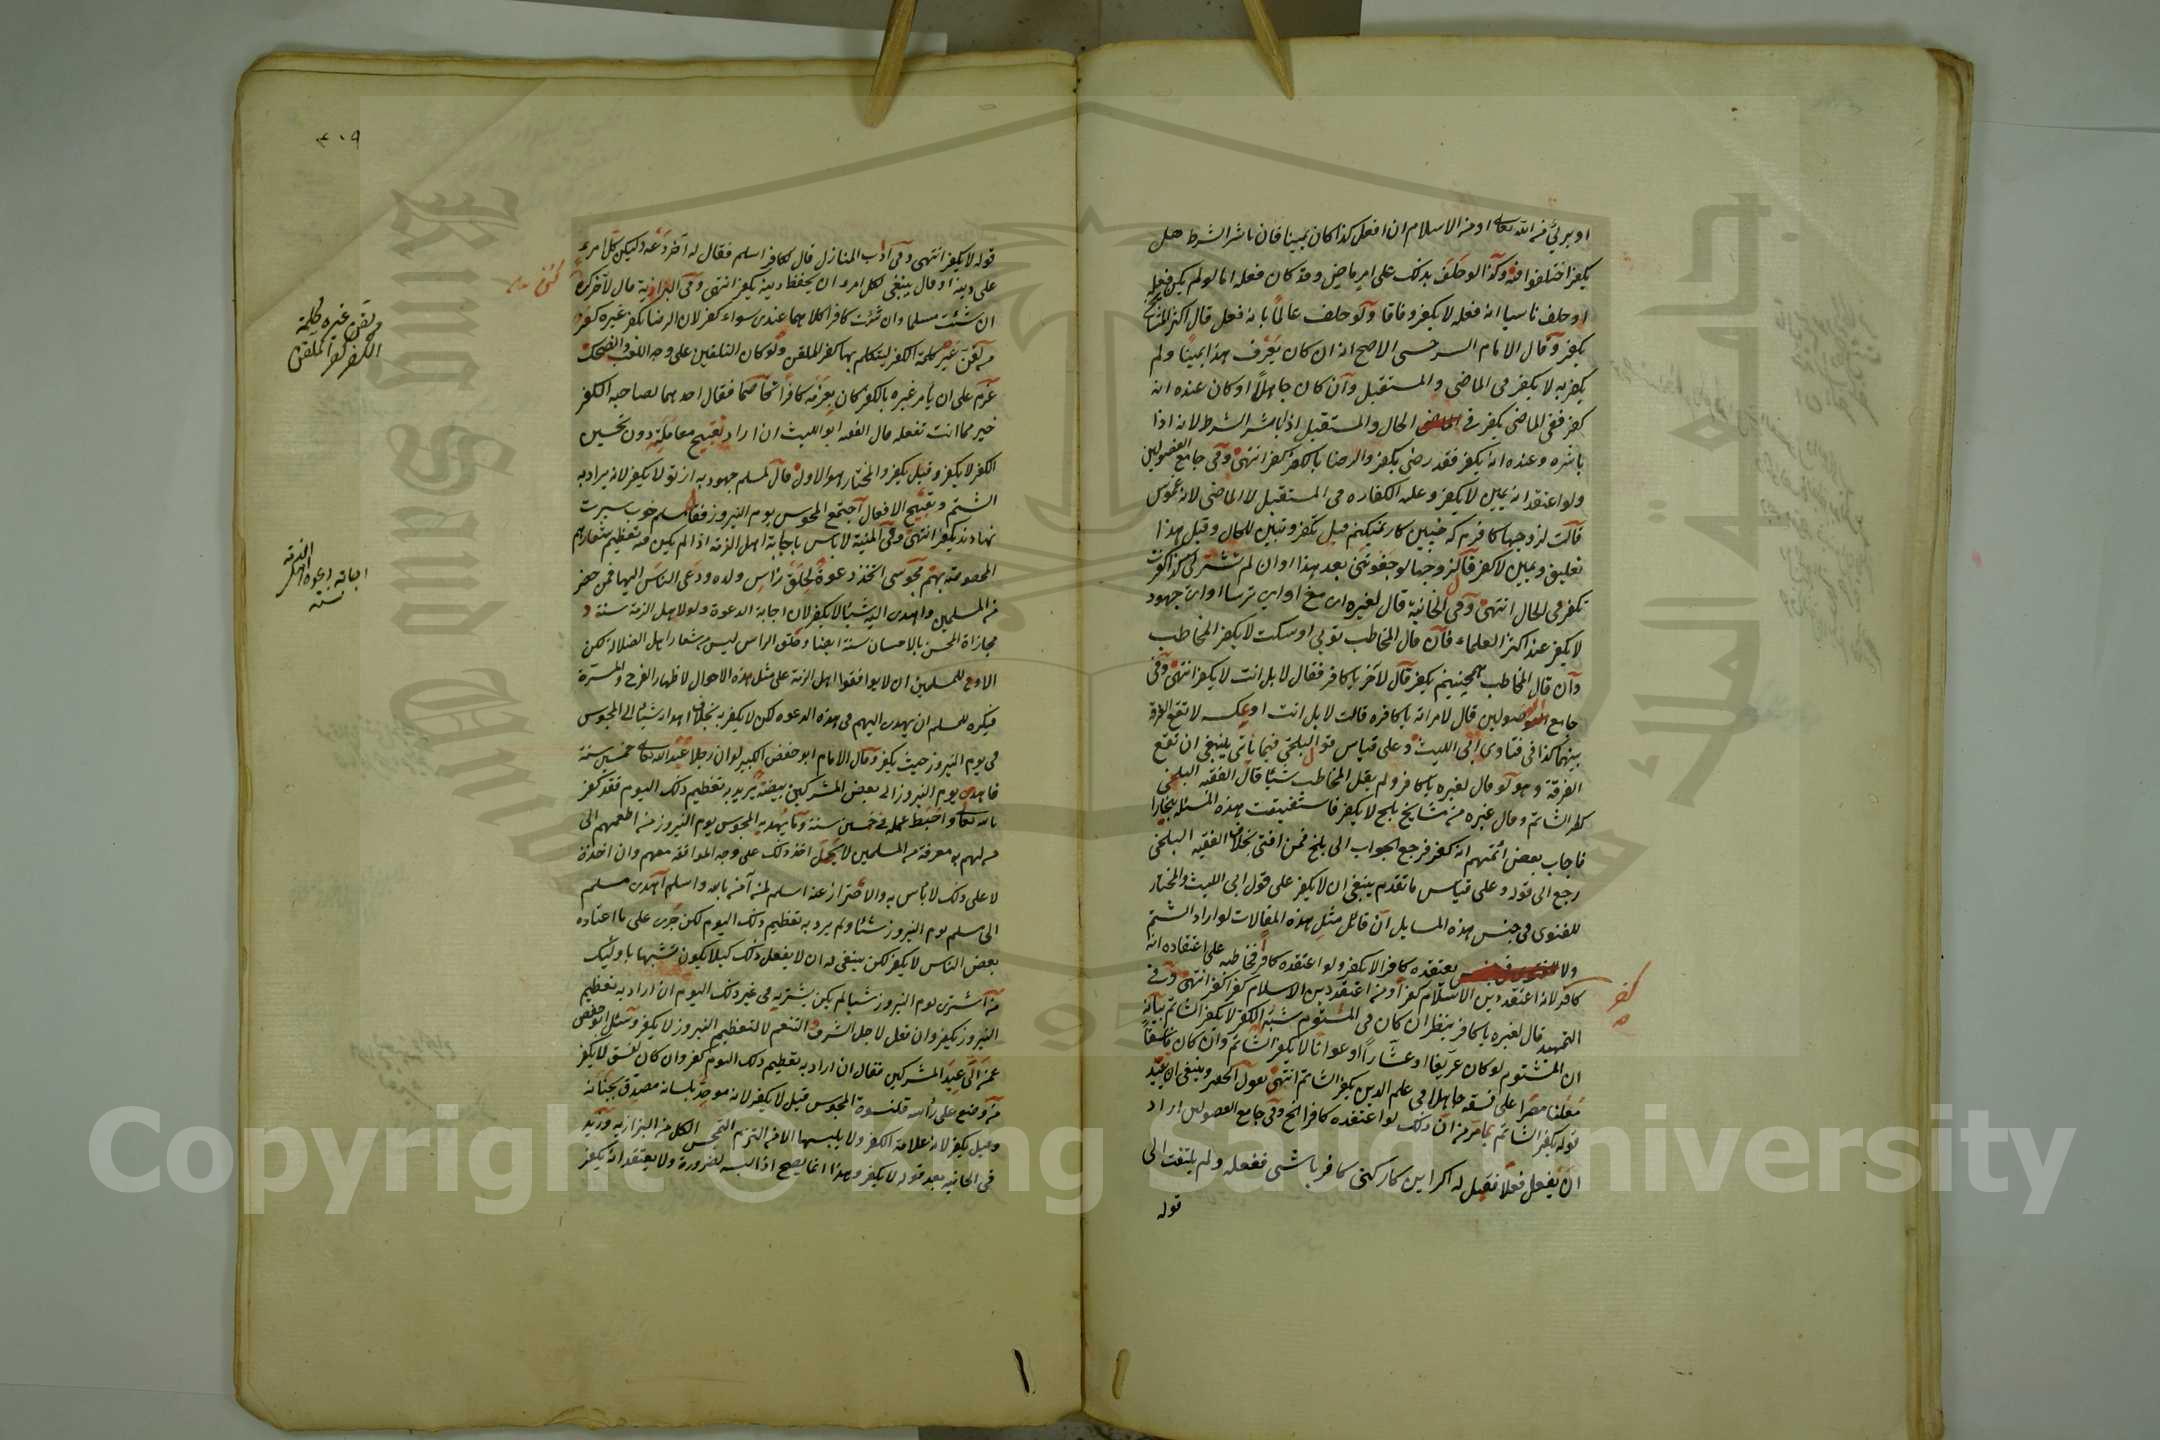 او برئ من الله تعالى او من الاسلام ان افعل كذا كان يمينا فان باشر الشرط هل
يكفر اختلفوا فيه وكذا لو حلف بذلك على امر ماض وقد كان فعله انا لو لم يكن فعله
او حلف ناسيا انه فعله لا يكفر وفاقا ولو حلف عالما بانه فعل قال اكثر المشايخ
يكفر وقال الامام السرخسى الاصح انه ان كان يعرف هذا يمينا ولم
يكفر به لا يكفر فى الماضى والمستقبل وان كان جاهلا او كان عنده انه
كفر ففى الماضى يكفر فى الحال والمستقبل اذا باشر الشرط لانه اذا
باشره وعنده انه يكفر فقد رضى بكفر والرضا بالكفر كفر انتهى وفى جامع الفصولين
ولو اعتقد انه يمين لا يكفر وعليه الكفاره فى المستقبل لا الماضى لانه غموس
قالت لزوجها كافرم كه چنين كار نميكنم قيل تكفر وتبين للحال وقيل هذا
تعليق ويمين لا كفر قال زوجها لو جفوتنى بعد هذا او ان لم تشتر لى كذا كفرت
تكفر فى الحال انتهى وفى الخانية قال لغيره اى مغ او اى ترسا او اى جهود
لا يكفر عند اكثر العلماء فان قال المخاطب توبى او سكت لا يكفر المخاطب
وان قال المخاطب همچنينم يكفر قال لآخر يا كافر فقال لا بل انت لا يكفر انتهى وفى
جامع الفصولين قال لامراته يا كافره قالت لا بل انت او عكسه لا تقع الفرقة
بينهما كذا فى فتاوى ابى الليث وعلى قياس قول البلخى فيما ياتى ينبغى ان تقع
الفرقة وهو لو قال لغيره يا كافر ولم يقل المخاطب شيئا قال الفقيه البلخى
كفر الشاتم وقال غيره من مشايخ بلخ لا يكفر فاستفتيت هذه المسئلة ببخارا
فاجاب بعض ائمتهم انه كفر فرجع الجواب الى بلخ فمن افتى بخلاف الفقيه البلخى
رجع الى قوله وعلى قياس ما تقدم ينبغى ان لا يكفر على قول ابى الليث والمختار
للفتوى فى جنس هذه المسايل ان قائل مثل هذه المقالات لو اراد الشتم
ولا يعتقده كافرا لا يكفر ولو اعتقده كافرا فخاطبه على اعتقاده انه
كافر لانه اعتقد دين الاسلام كفرا ومن اعتقد دين الاسلام كفرا كفر انتهى وفى
التمهيد قال لغيره يا كافر ينظر ان كان فى المشتوم شبه الكفر لا يكفر الشاتم بيانه
ان المشتوم لو كان عريفا او عشارا او عوانا لا يكفر الشاتم وان كان فاسقا
معلنا مصرا على فسقه جاهلا فى علم الدين يكفر الشاتم انتهى يقول الحقير وينبغى ان يقيد
قوله يكفر الشاتم بما مر من ان ذلك لو اعتقده كافرا الخ وفى جامع الفصولين اراد
ان يفعل فعلا فقيل له اكر اين كار كنى كافر باشى ففعله ولم يلتفت الى
قوله
٣٠٩
قوله لا يكفر انتهى وفى آداب المنازل قال كافر اسلم فقال له آخر دعه وليكن كل امرء
على دينه او قال ينبغى لكل امرء ان يحفظ دينه يكفر انتهى وفى البزازية قال لآخر كن
ان شئت مسلما وان شئت كافرا كلاهما عندى سواء كفر لان الرضا بكفر غيره كفر
من لقن غيره كلمة الكفر ليتكلم بها كفر الملقن ولو كان التلقين على وجه اللعب والضحك
عزم على ان يأمر غيره بالكفر كان بعزمه كافرا تخاصما فقال احدهما لصاحبه الكفر
خير مما انت تفعله قال الفقيه ابو الليث ان اراد تقبيح معاملته دون تحسين
الكفر لا يكفر وقيل يكفر والمختار هو الاول قال لمسلم جهود به از تو لا يكفر لانه يراد به
الشتم وتقبيح الافعال اجتمع المجوس يوم النيروز فقال مسلم خوب سيرت
نهادند يكفر انتهى وفى المنية لا باس باجابة اهل الذمة اذا لم يكن فيه تعظيم شعارهم
المخصوصة بهم مجوسى اتخذ دعوة لحلق راس ولده ودعى الناس اليها فمن حضر
من المسلمين واهدى اليه شيئا لا يكفر لان اجابة الدعوة ولو لاهل الذمة سنة و
مجازاة المحسن بالاحسان سنة ايضا وحلق الراس ليس من شعار اهل الضلالة لكن
الاورع للمسلمين ان لا يوافقوا اهل الذمة على مثل هذه الاحوال لاظهار الفرح والمسرة
فيكره للمسلم ان يهدى اليهم فى هذه الدعوه لكن لا يكفر به بخلاف اهداء شيئا الى المجوس
فى يوم النيروز حيث يكفر وقال الامام ابو حفص الكبير لو ان رجلا عبد الله تعالى خمسين سنة
فاهدى يوم النيروز الى بعض المشركين بيضة يريد به تعظيم ذلك اليوم فقد كفر
بالله تعالى واحبط عمله فى خمسين سنة وما يهديه المجوس يوم النيروز من اطعمتهم الى
من لهم به معرفة من المسلمين لا يحل اخذ ذلك على وجه الموافقة معهم وان اخذه
لا على ذلك لا باس به والاحتراز عنه اسلم لمن آمن بالله واسلم اهدى مسلم
الى مسلم يوم النيروز شيئا ولم يرد به تعظيم ذلك اليوم لكن جرى على ما اعتاده
بعض الناس لا يكفر لكن ينبغى له ان لا يفعل ذلك كيلا يكون تشبها باولئك
من اشترى يوم النيروز شيئا لم يكن يشتريه فى غير ذلك اليوم ان اراد به تعظيم
النيروز يكفر وان فعل لاجل الشرف والتنعم لا لتعظيم النيروز لا يكفر وسئل ابو حفص
عمن اتى عيد المشركين فقال ان اراد به تعظيم ذلك اليوم كفر وان كان لفسق لا يكفر
من وضع على رأسه قلنسوة المجوس قيل لا يكفر لانه موحد بلسانه مصدق بجنانه
وقيل يكفر لانه علامة الكفر ولا يلبسها الا من التزم التمجس الكل من البزازيه وزيد
فى الخانيه بعد قوله لا يكفر وهذا انما يصح اذا لبسه لضرورة ولا يعتقد انه يكفر
من لقن غيره كلمة
الكفر كفر الملقن
اجابة دعوة اهل الذمة
سنة
Copyright © King Saud University
King Saud University
جامعة الملك سعود
1957